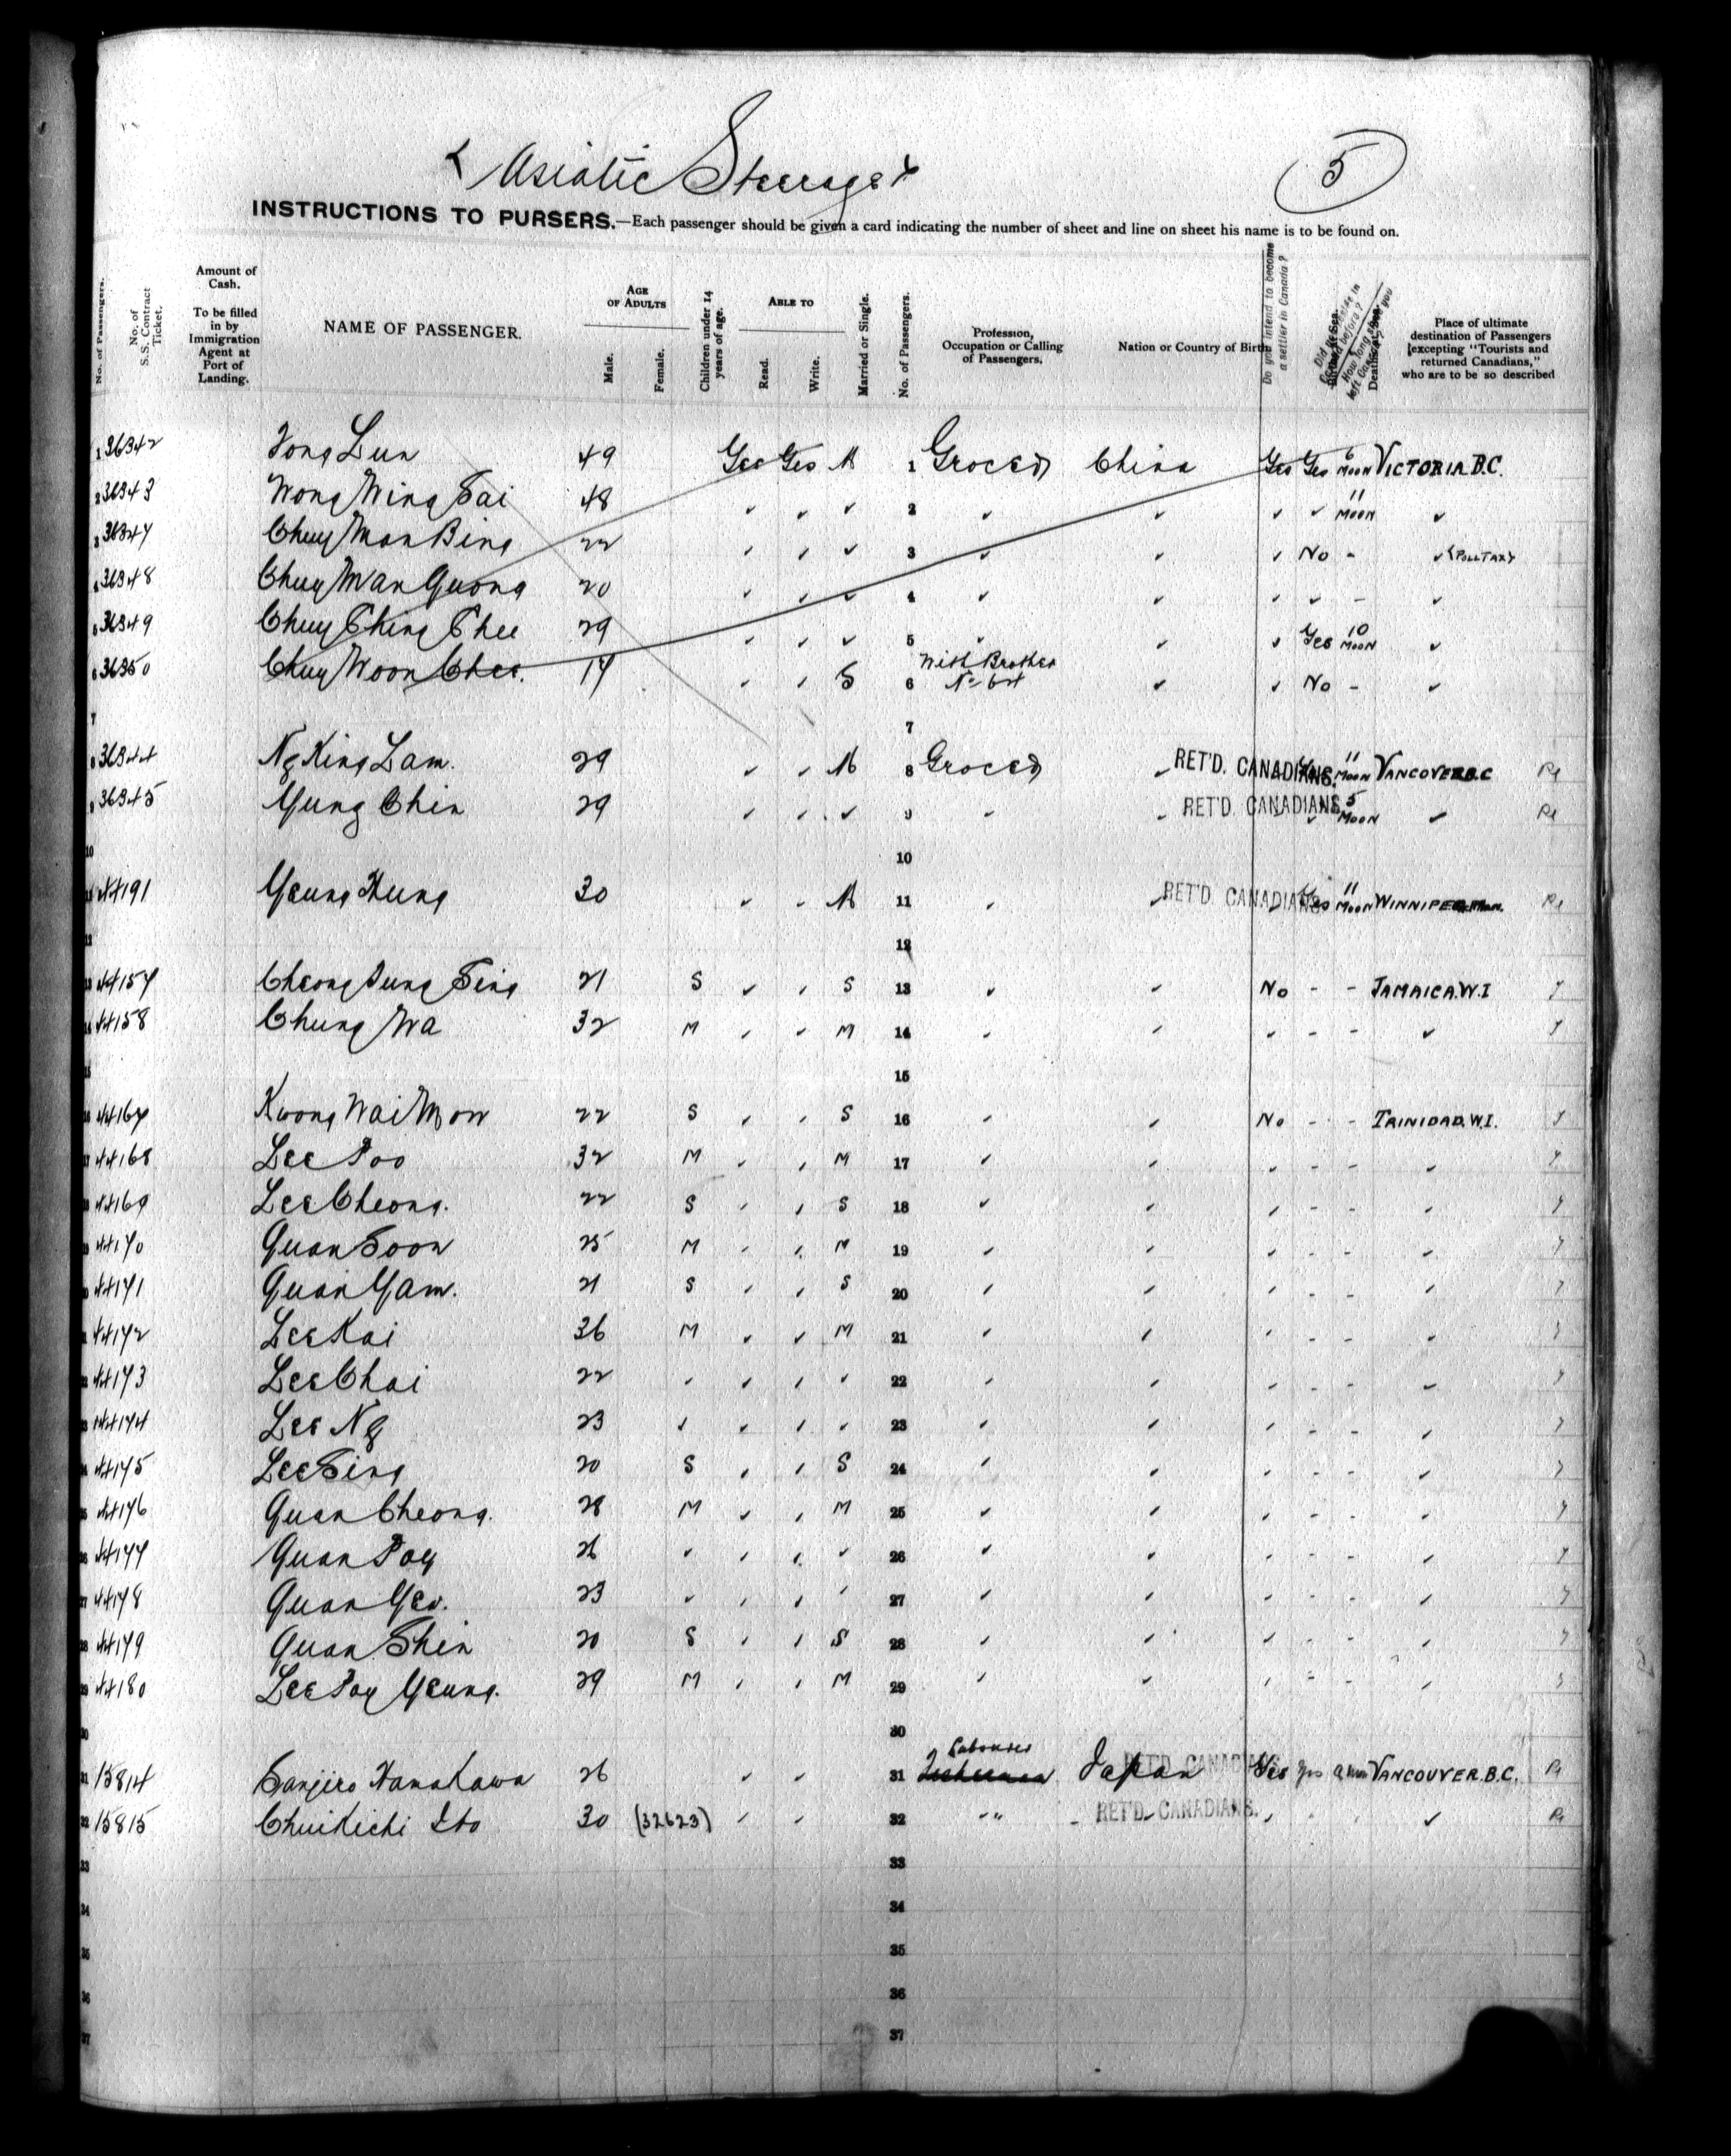 Asiatic Steerage
5
INSTRUCTIONS TO PURSERS.—Each passenger should be given a card indicating the number of sheet and line on sheet his name is to be found on.
No. of Passengers.
No. of S.S. Contract Ticket.
Amount of Cash.
To be filled in by Immigration Agent at Port of Landing.
NAME OF PASSENGER.
AGE OF ADULTS
Male.
Female.
Children under 14 years of age.
ABLE TO
Read.
Write.
Married or Single.
No. of Passengers.
Profession, Occupation or Calling of Passengers.
Nation or Country of Birth
Do you intend to become a settler in Canada?
Place of ultimate destination of Passengers [excepting "Tourists and returned Canadians," who are to be so described
1 36342 Tong Lun 49 Yes Yes M 1 Grocer China Yes Yes 6 Moon VICTORIA B.C.
2 36343 Wong Wing Sai 48 ✓ ✓ ✓ 2 ✓ ✓ ✓ ✓ 11 Moon ✓
3 36347 Chuy Man Bing 22 ✓ ✓ ✓ 3 ✓ ✓ ✓ No - ✓ (POLLTAX)
4 36348 Chuy Man Quong 20 ✓ ✓ ✓ 4 ✓ ✓ ✓ ✓ - ✓
5 36349 Chuy Ching Chee 29 ✓ ✓ ✓ 5 ✓ ✓ ✓ Yes 10 Moon ✓
6 36350 Chuy Woon Chee. 17 ✓ ✓ S 6 With Brother ✓ ✓ No - ✓
7 7
8 36344 Ng King Lam. 29 ✓ ✓ M 8 Grocer ✓ RET'D. CANADIANS. Yes 11 Moon VANCOVER B.C
9 36345 Yung Chin 29 ✓ ✓ ✓ 9 ✓ ✓ RET'D. CANADIANS. ✓ 5 Moon ✓
10 10
11 44191 Yeung Hung 30 ✓ ✓ M 11 ✓ ✓ RET'D. CANADIANS. Yes 11 Moon WINNIPEG Man.
12 12
13 44157 Cheong Jung Sing 21 S ✓ ✓ S 13 ✓ ✓ No - - JAMAICA.W.I
14 44158 Chung Wa 32 M ✓ ✓ M 14 ✓ ✓ ✓ - - ✓
15 15
16 44167 Kwong Wai Mon 22 S ✓ ✓ S 16 ✓ ✓ No - - TRINIDAD.W.I.
17 44168 Lee Poo 32 M ✓ ✓ M 17 ✓ ✓ ✓ - - ✓
18 44169 Lee Cheong. 22 S ✓ ✓ S 18 ✓ ✓ ✓ - - ✓
19 44170 Quan Soon 25 M ✓ ✓ M 19 ✓ ✓ ✓ - - ✓
20 44171 Quan Yam. 21 S ✓ ✓ S 20 ✓ ✓ ✓ - - ✓
21 44172 Lee Kai 36 M ✓ ✓ M 21 ✓ ✓ ✓ - - ✓
22 44173 Lee Chai 22 ✓ ✓ ✓ ✓ 22 ✓ ✓ ✓ - - ✓
23 44174 Lee Ng 23 ✓ ✓ ✓ ✓ 23 ✓ ✓ ✓ - - ✓
24 44175 Lee Sing 20 S ✓ ✓ S 24 ✓ ✓ ✓ - - ✓
25 44176 Quan Cheong. 28 M ✓ ✓ M 25 ✓ ✓ ✓ - - ✓
26 44177 Quan Poy 26 ✓ ✓ ✓ ✓ 26 ✓ ✓ ✓ - - ✓
27 44178 Quan Yeo. 23 ✓ ✓ ✓ ✓ 27 ✓ ✓ ✓ - - ✓
28 44179 Quan Shin 20 S ✓ ✓ S 28 ✓ ✓ ✓ - - ✓
29 44180 Lee Poy Yeung. 29 M ✓ ✓ M 29 ✓ ✓ ✓ - - ✓
30 30
31 15814 Sanjiro Hamakawa 26 ✓ ✓ 31 Labourer Japan RET'D. CANADIANS. Yes yes VANCOUVER.B.C.
32 15815 Chuikichi Ito 30 (32623) ✓ ✓ 32 " RET'D. CANADIANS. ✓ ✓
33 33
34 34
35 35
36 36
37 37